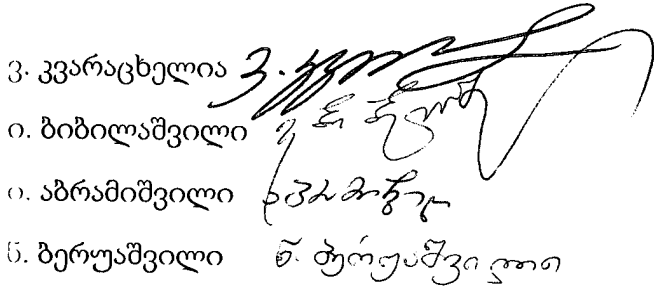 ვ. კვარაცხელია ვ. კვარ
ი. ბიბილაშვილი
ი. აბრამიშვილი
ნ. ბერუაშვილი ნ. ბერუაშვილი